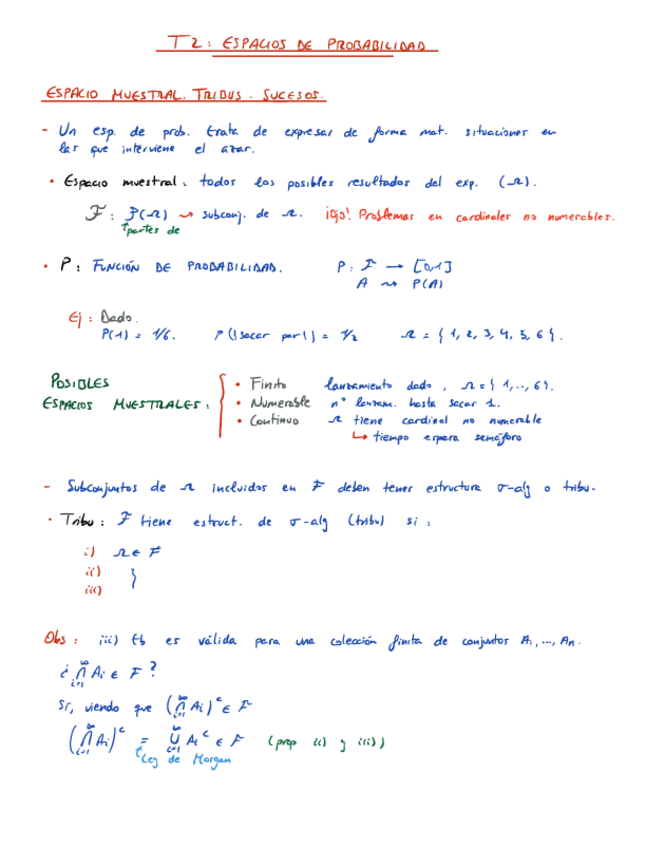 T2: ESPACIOS DE PROBABILIDAD
ESPACIO MUESTRAL. TRIBUS. SUCESOS.
- Un esp. de prob. trata de expresar de forma mat. situaciones en
las que interviene el azar.
• Espacio muestral: todos los posibles resultados del exp. (Ω).
F: P(Ω) ⇝ subconj. de Ω. ¡Ojo! Problemas en cardinales no numerables.
↑partes de
• P: FUNCIÓN DE PROBABILIDAD. P: F → [0,1]
A ⇝ P(A)
Ej: Dado.
P(1) = 1/6. P(|sacar par|) = 1/2 Ω = {1, 2, 3, 4, 5, 6}.
POSIBLES ESPACIOS MUESTRALES:
• Finito lanzamiento dado, Ω = {1,..,6}.
• Numerable nº lanzam. hasta sacar 1.
• Continuo Ω tiene cardinal no numerable
↳ tiempo espera semáforo
- Subconjuntos de Ω incluidos en F deben tener estructura σ-alg o tribu.
• Tribu: F tiene estruct. de σ-alg (tribu) si:
i) Ω ∈ F
ii) }
iii)
Obs: iii) tb es válida para una colección finita de conjuntos A₁,..., Aₙ.
¿ ⋂ᵢ₌₁^∞ Aᵢ ∈ F ?
Sí, viendo que (⋂ᵢ₌₁^∞ Aᵢ)ᶜ ∈ F
(⋂ᵢ₌₁^∞ Aᵢ)ᶜ = ⋃ᵢ₌₁^∞ Aᵢᶜ ∈ F (prop ii) y iii))
↑Ley de Morgan